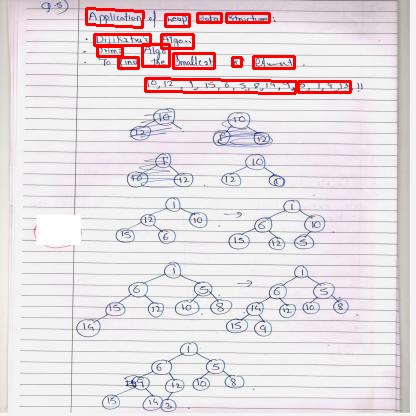 Q.5)
Application of heap data structure:
Dijikstra's Algo.
Prims Algo
To find the smallest element.
10, 12, 1, 15, 6, 5, 8, 14,
10
12
10
1 12
1
10 12
10
12 1
1
12 10
15 6
→
1
6 10
15 12 5
1
6 5
15 12 10 8
14
→
1
6 5
14 12 10 8
15 9
1
6 5
9 12 10 8
15 14 3